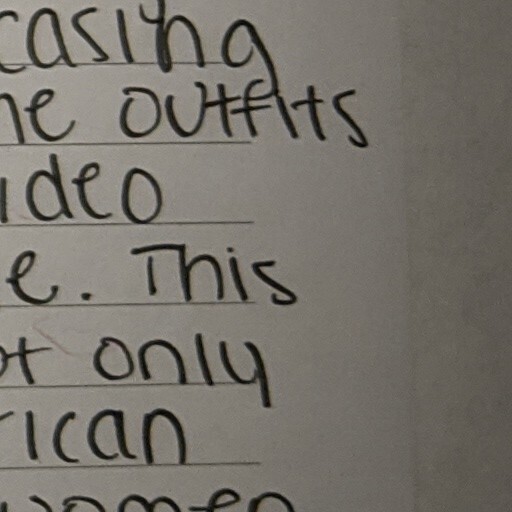 casing
he outfits
ideo
e. This
ot only
rican
women